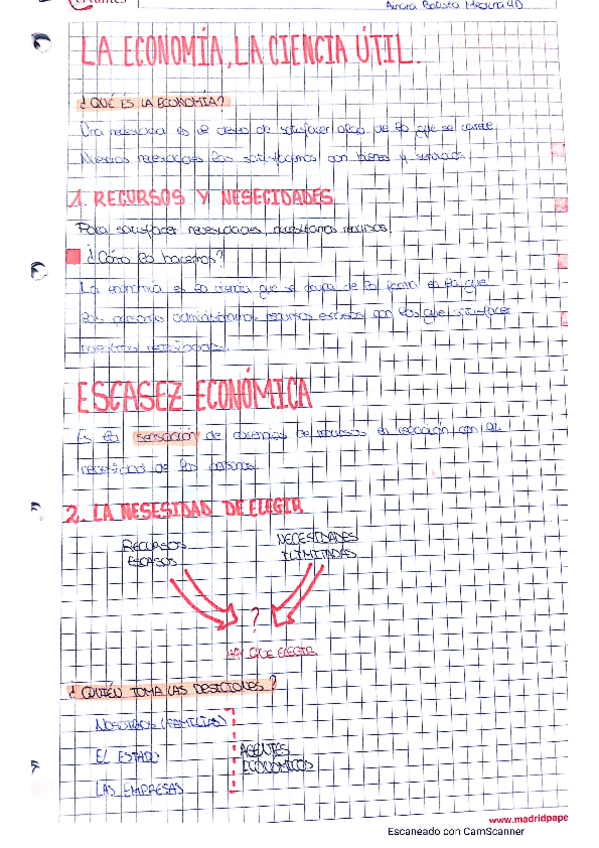 Cervantes
Ainara Batista Medina 4D
LA ECONOMÍA, LA CIENCIA ÚTIL.
¿QUÉ ES LA ECONOMÍA?
Una necesidad es el deseo de satisfacer algo de lo que se carece.
Nuestras necesidades las satisfacemos con bienes y servicios.
1. RECURSOS Y NESECIDADES
Para satisfacer necesidades, necesitamos recursos!
¿Cómo lo hacemos?
La economía es la ciencia que se ocupa de la forma en la que
las administramos recursos escasos con los que satisfacer
nuestras necesidades.
ESCASEZ ECONÓMICA
Es la sensación de carencia de recursos en relación con la
necesidad de las personas.
2. LA NESESIDAD DE ELEGIR
RECURSOS NECESIDADES
ESCASOS ILIMITADAS
?
HAY QUE ELEGIR
¿QUIÉN TOMA LAS DESICIONES?
NOSOTROS (FAMILIAS)
EL ESTADO AGENTES
ECONÓMICOS
LAS EMPRESAS
www.madridpape
Escaneado con CamScanner